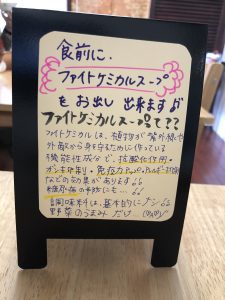 食前に、
ファイトケミカルスープ
をお出し出来ます♪
ファイトケミカルスープって??
ファイトケミカルは、植物が紫外線や
外敵から身を守るために作っている
機能性成分で、抗酸化作用・
ガン抑制・免疫力アップ・アレルギー抑制
などの効果があります
糖尿病の予防にも…
調味料は、基本的にナシ
野菜のうまみだけ…